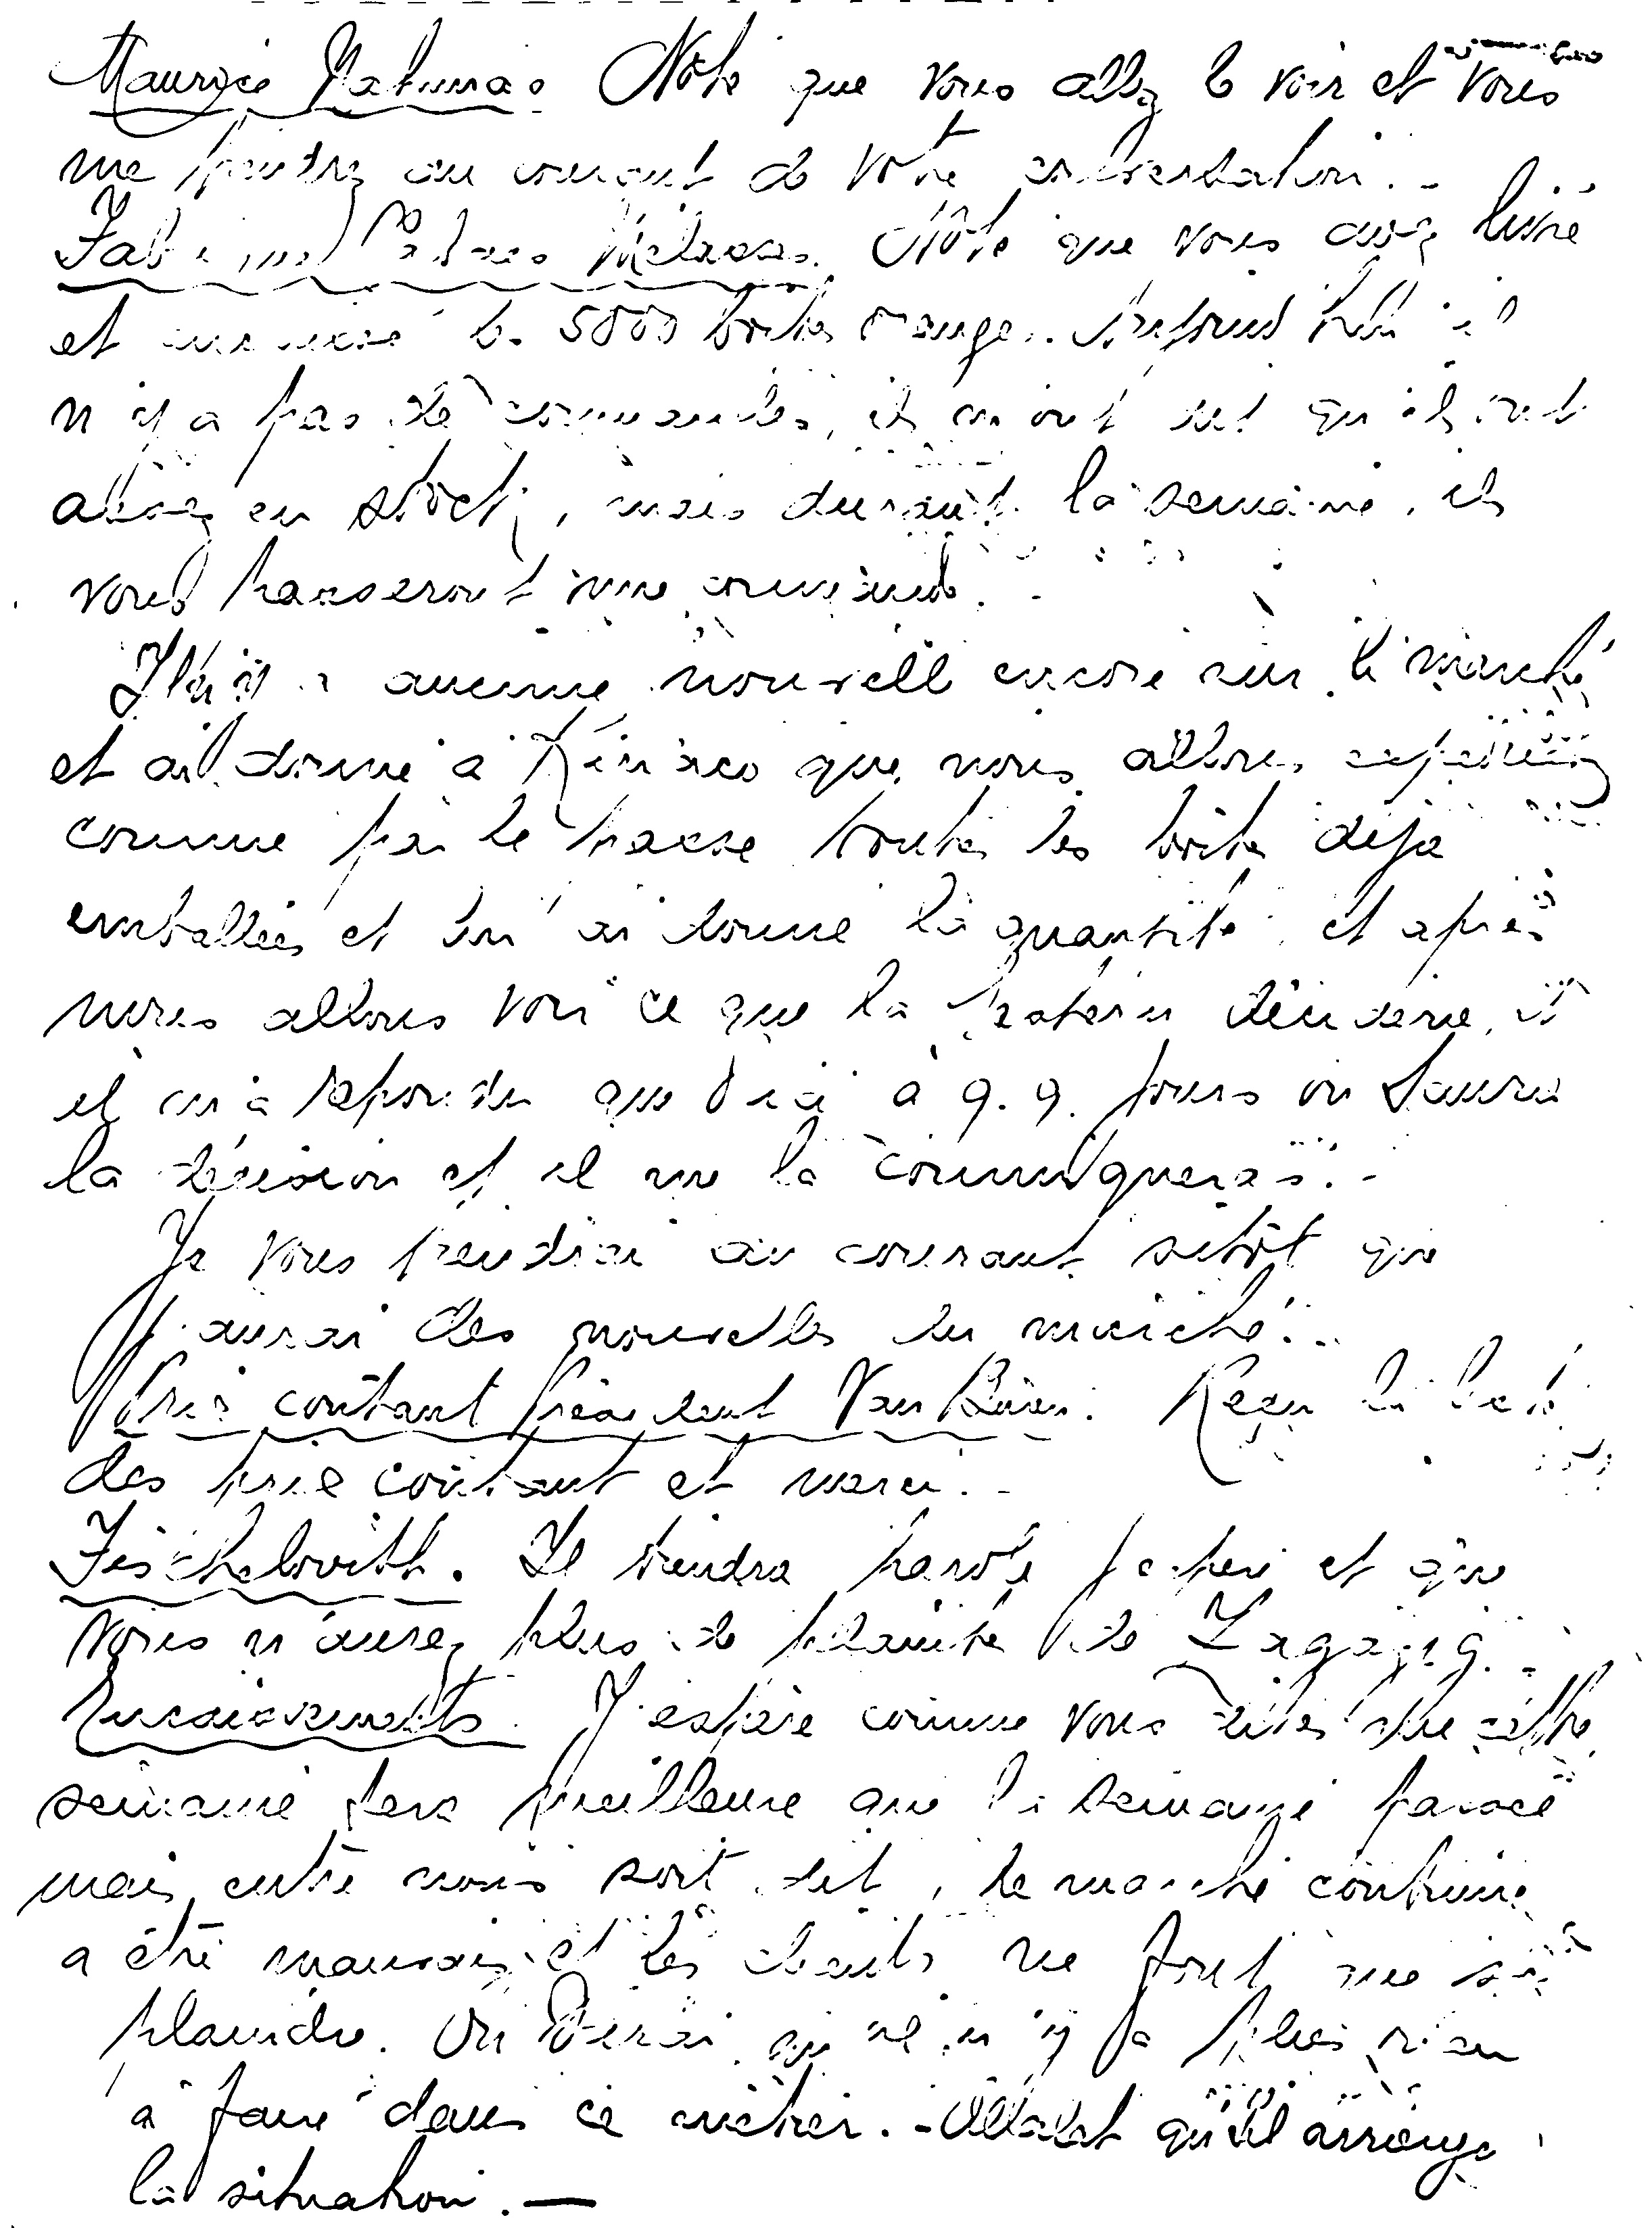 Maurice Nahmias Noté que vous allez le voir et vous
me tiendrez au courant de votre conversation. -
Noté que vous avez livré
et encaissé les 5000 boites rouges. Surtout il
n'y a pas de commandes, ils m'ont dit qu'ils ont
assez en stock, mais durant la semaine, ils
vous passeront une commande. -
Il n'y a aucune nouvelle encore sur le marché
et ai donné à que nous allons expédier
comme par le passé toutes les boites déjà
emballées et lui ai donné la quantité et après
nous allons voir ce que la décidera, et
il m'a répondu que d'ici à q.q. jours on saura
la décision et il me la communiquera. -
Je vous tiendrai au courant sitôt que
j'aurai des nouvelles du marché. -
Prix coutant Président Van Buren. Reçu la liste
des prix coutant et merci. -
Fischelovith. Il tiendra parole et que
vous n'aurez plus de plainte de Zagazig. -
Encaissements J'espère comme vous dites que cette
semaine sera meilleure que la semaine passée
mais entre nous soit dit, le marché continue
a être mauvais et les clients ne font que se
plaindre. On dirai qu'il n'y a plus rien
à faire dans ce métier. - qu'il arrange
la situation. —